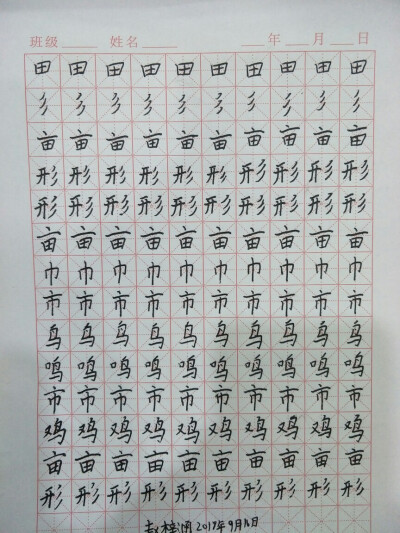 班级 姓名 年 月 日
田 田 田 田 田 田 田 田 田 田
彡 彡 彡 彡 彡 彡 彡 彡 彡 彡
亩 亩 亩 亩 亩 亩 亩 亩 亩 亩
形 形 形 形 形 形 形 形 形 形
形 形 形 形 形 形 形 形 形 形
亩 亩 亩 亩 亩 亩 亩 亩 亩 亩
巾 巾 巾 巾 巾 巾 巾 巾 巾 巾
市 市 市 市 市 市 市 市 市 市
鸟 鸟 鸟 鸟 鸟 鸟 鸟 鸟 鸟 鸟
鸣 鸣 鸣 鸣 鸣 鸣 鸣 鸣 鸣 鸣
市 市 市 市 市 市 市 市 市 市
鸡 鸡 鸡 鸡 鸡 鸡 鸡 鸡 鸡 鸡
亩 亩 亩 亩 亩 亩 亩 亩 亩 亩
形 形 形 形 形 形 形 形 形 形
2017年9月16日